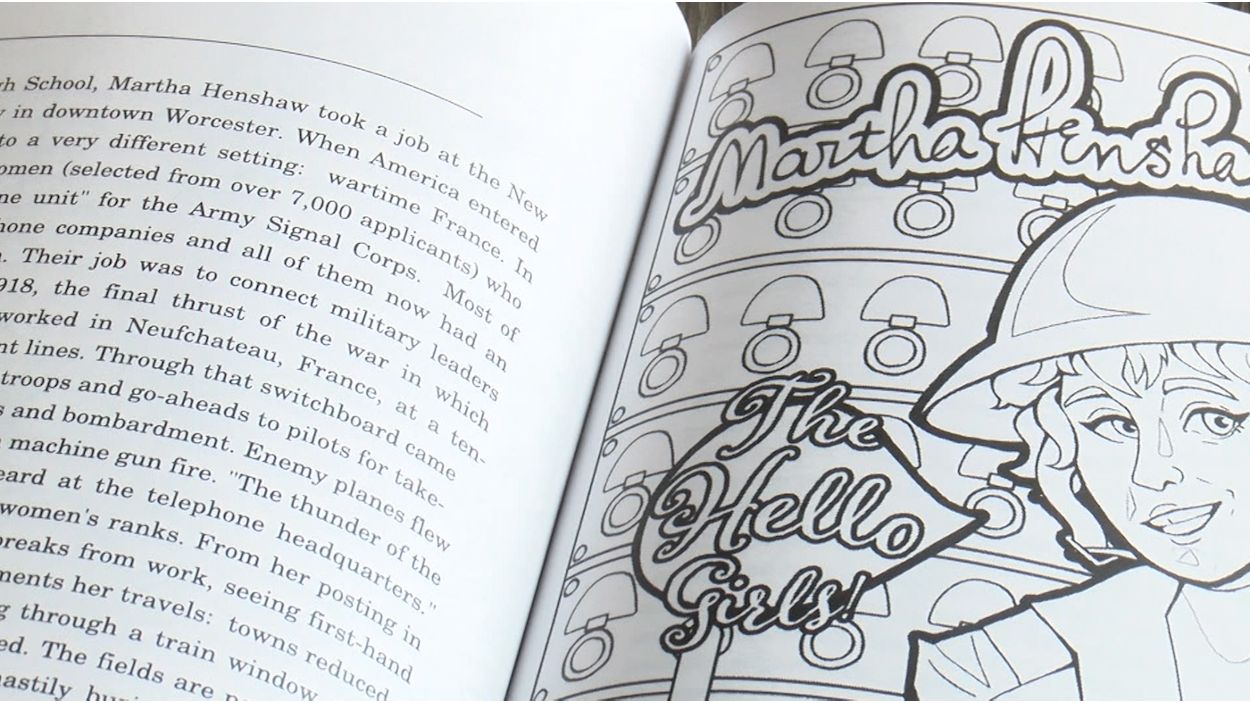 gh School, Martha Henshaw took a job at the New
y in downtown Worcester. When America entered
to a very different setting: wartime France. In
omen (selected from over 7,000 applicants) who
ne unit" for the Army Signal Corps. Most of
hone companies and all of them now had an
. Their job was to connect military leaders
918, the final thrust of the war in which
worked in Neufchateau, France, at a ten-
nt lines. Through that switchboard came
troops and go-aheads to pilots for take-
s and bombardment. Enemy planes flew
machine gun fire. "The thunder of the
eard at the telephone headquarters."
women's ranks. From her posting in
breaks from work, seeing first-hand
ments her travels: towns reduced
g through a train window
ed. The fields are
hastily
Martha Hensha
The
Hello
Girls!